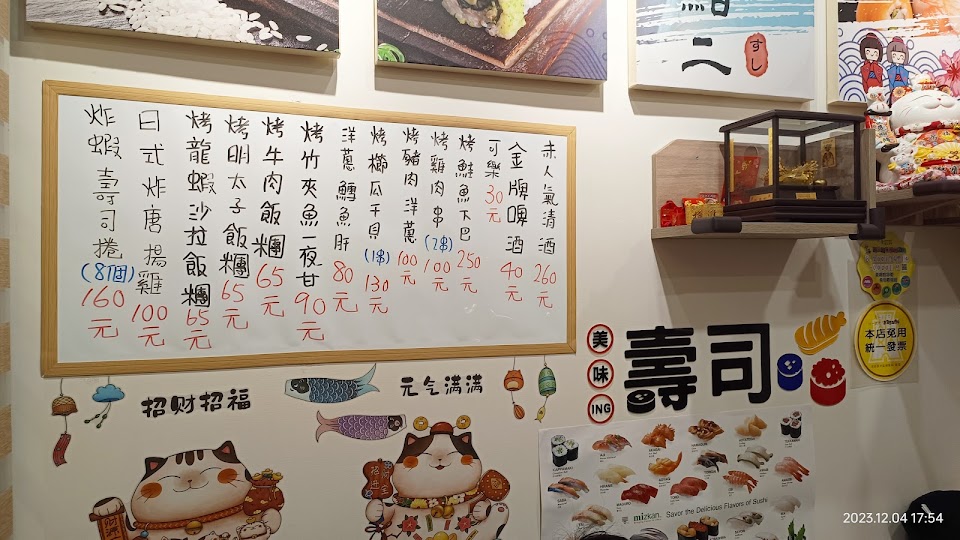 鮨二
すし
赤人氣清酒 260元
金牌啤酒 40元
可樂 30元
烤鮭魚下巴 250元
烤雞肉串 (2串) 100元
烤豬肉洋蔥 100元
烤櫛瓜干貝 (1串) 130元
洋蔥鱈魚肝 80元
烤竹夾魚一夜甘 90元
烤牛肉飯糰 65元
烤明太子飯糰 65元
烤龍蝦沙拉飯糰 65元
日式炸唐揚雞 100元
炸蝦壽司捲 (8個) 160元
招财招福
元气满满
美味ING
壽司
本店免用
統一發票
mizkan. Savor the Delicious Flavors of Sushi
2023.12.04 17:54